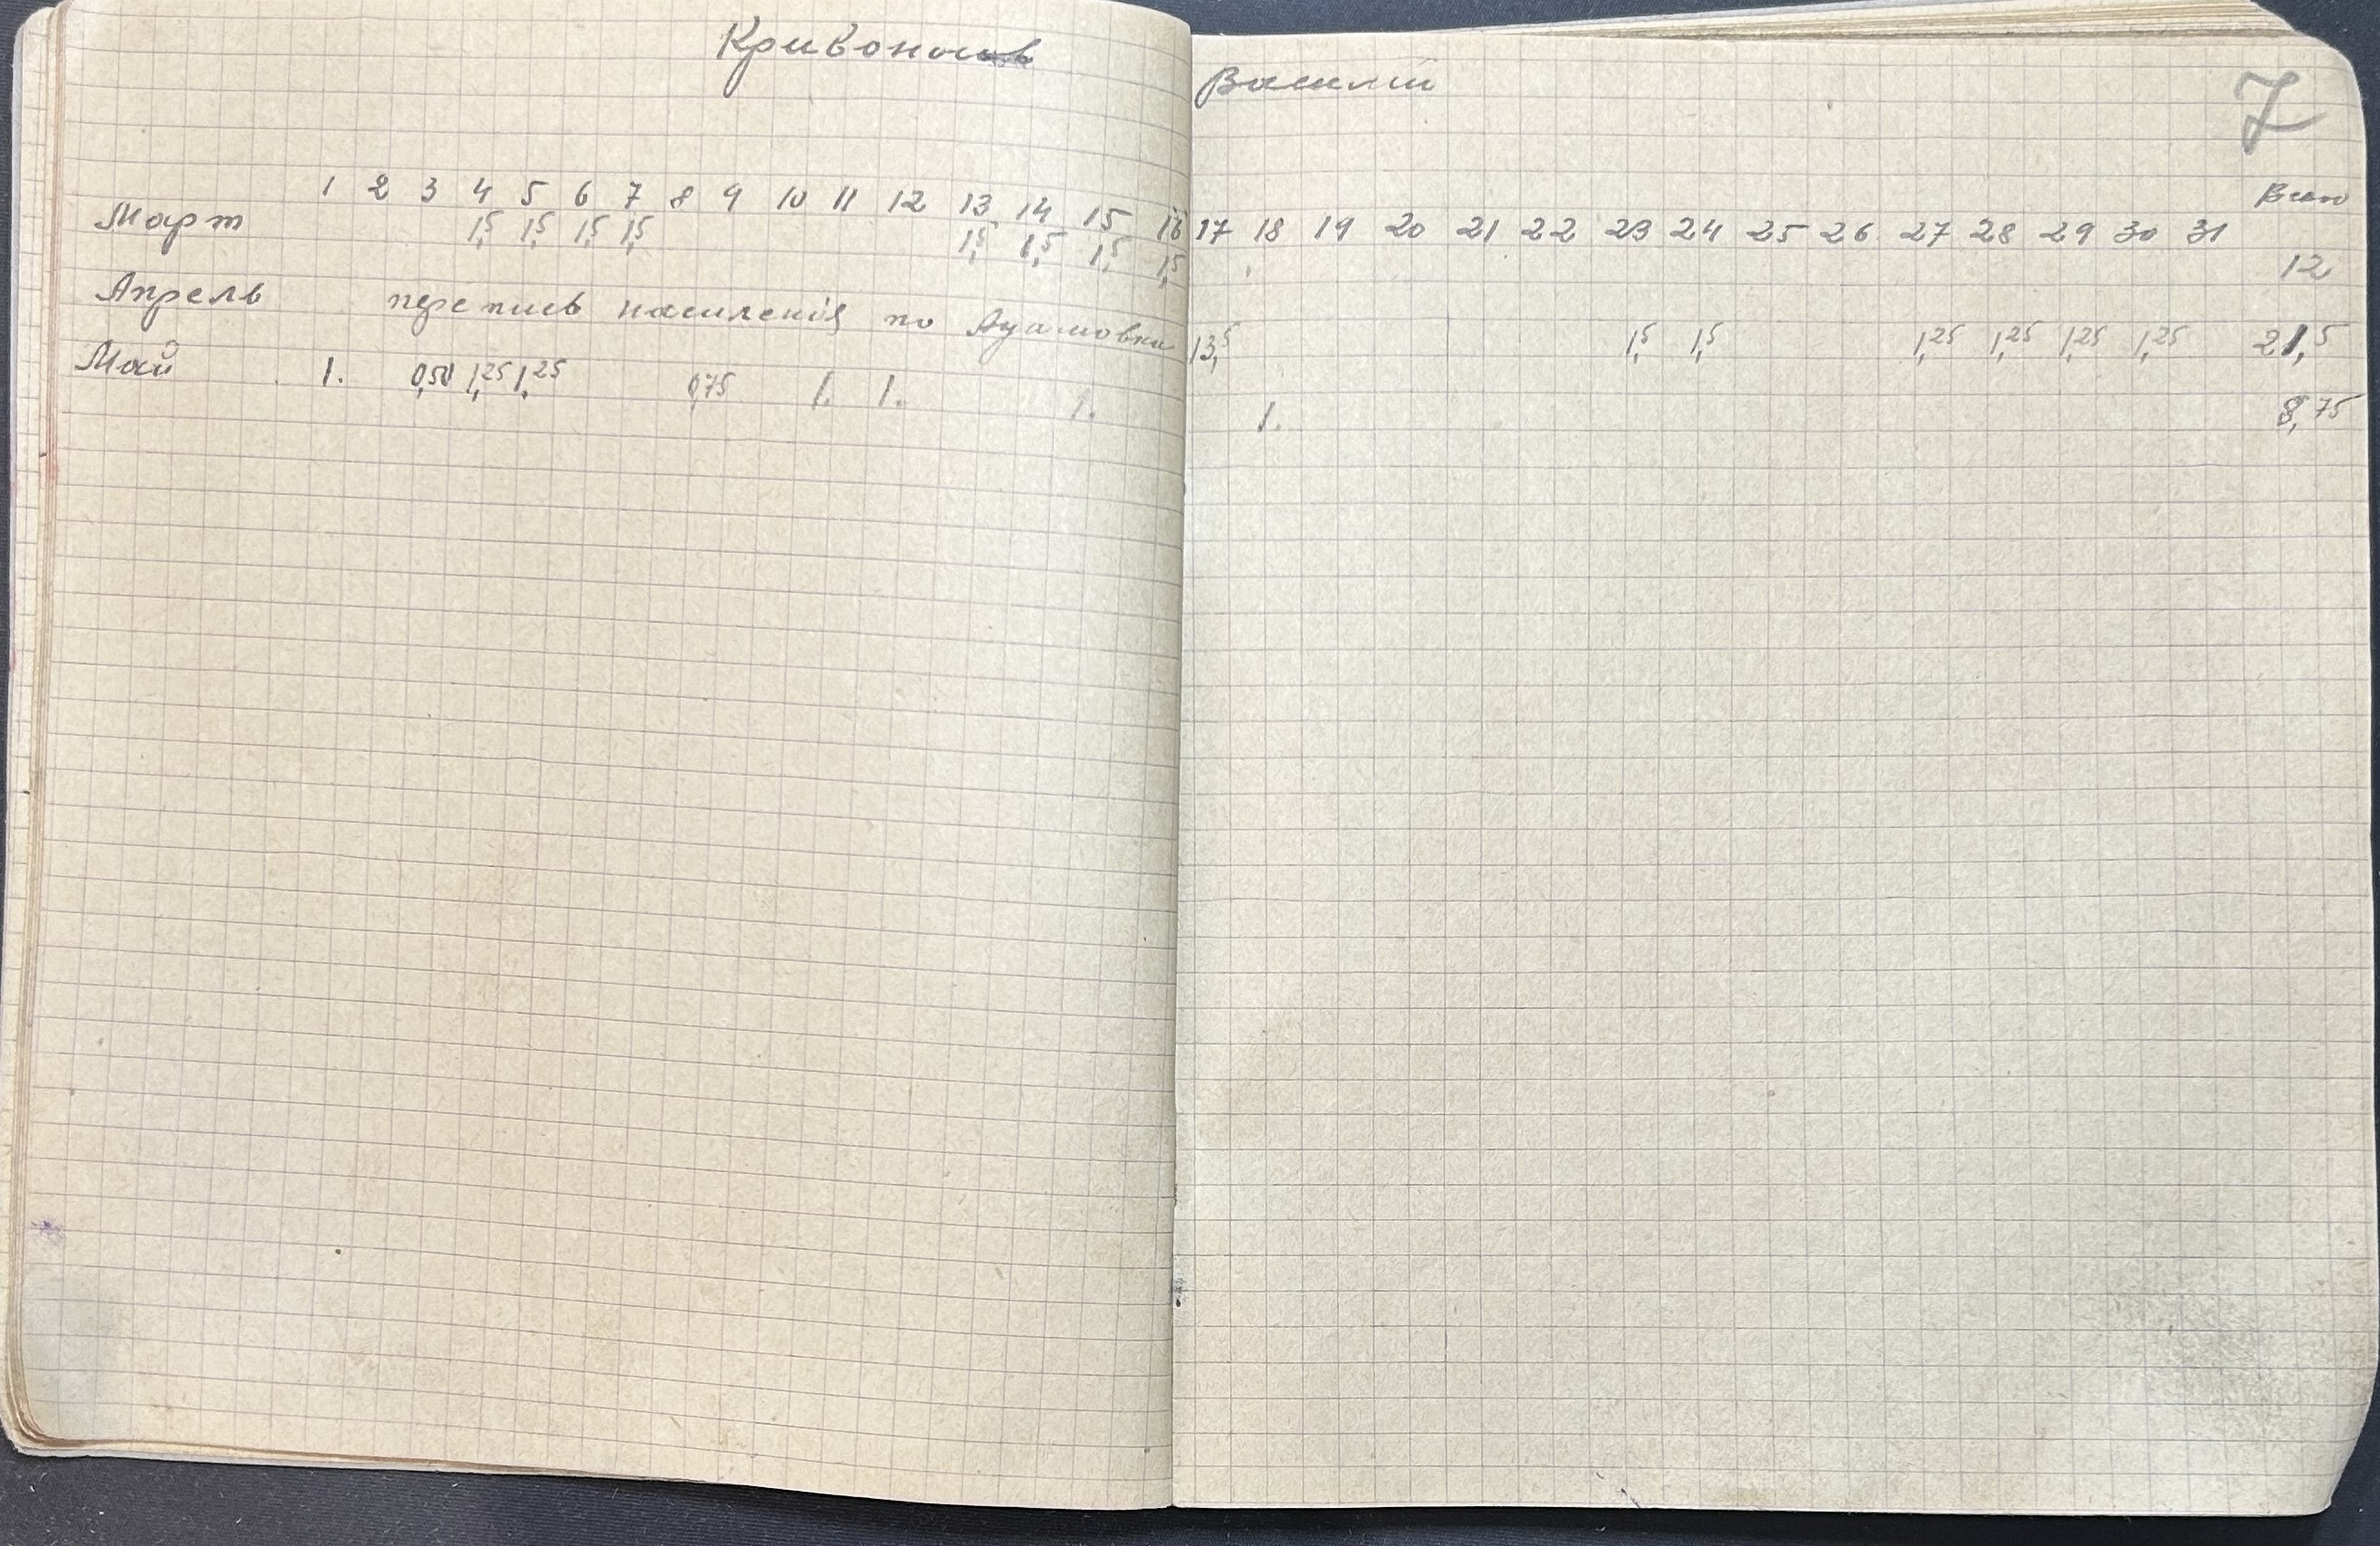 Кривоносов Василий
7
1 2 3 4 5 6 7 8 9 10 11 12 13 14 15 16 17 18 19 20 21 22 23 24 25 26 27 28 29 30 31 Всего
Март 1,5 1,5 1,5 1,5 1,5 1,5 1,5 1,5 12
Апрель перепись населения по 13,5 1,5 1,5 1,25 1,25 1,25 1,25 21,5
Май 1. 0,50 1,25 1,25 0,75 1. 1. 1. 1. 8,75